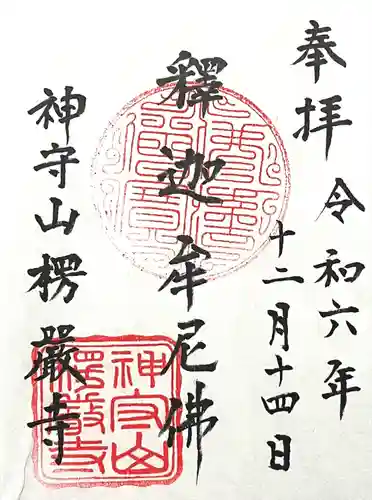 奉拝
令和六年
十二月十四日
釋迦牟尼佛
神守山楞嚴寺
神守山
楞嚴寺